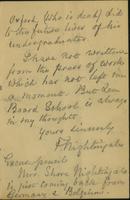 Oxford, (who is dead) did
to the future lives of his
undergraduates.
I have not written
from the press of work
which has not left me
a moment. But Leon
Board School is always
in my thoughts.
Yours sincerely
F Nightingale
Excuse pencil
Mrs. Shore Nightingale
is just coming back from
Germany & Belgium.